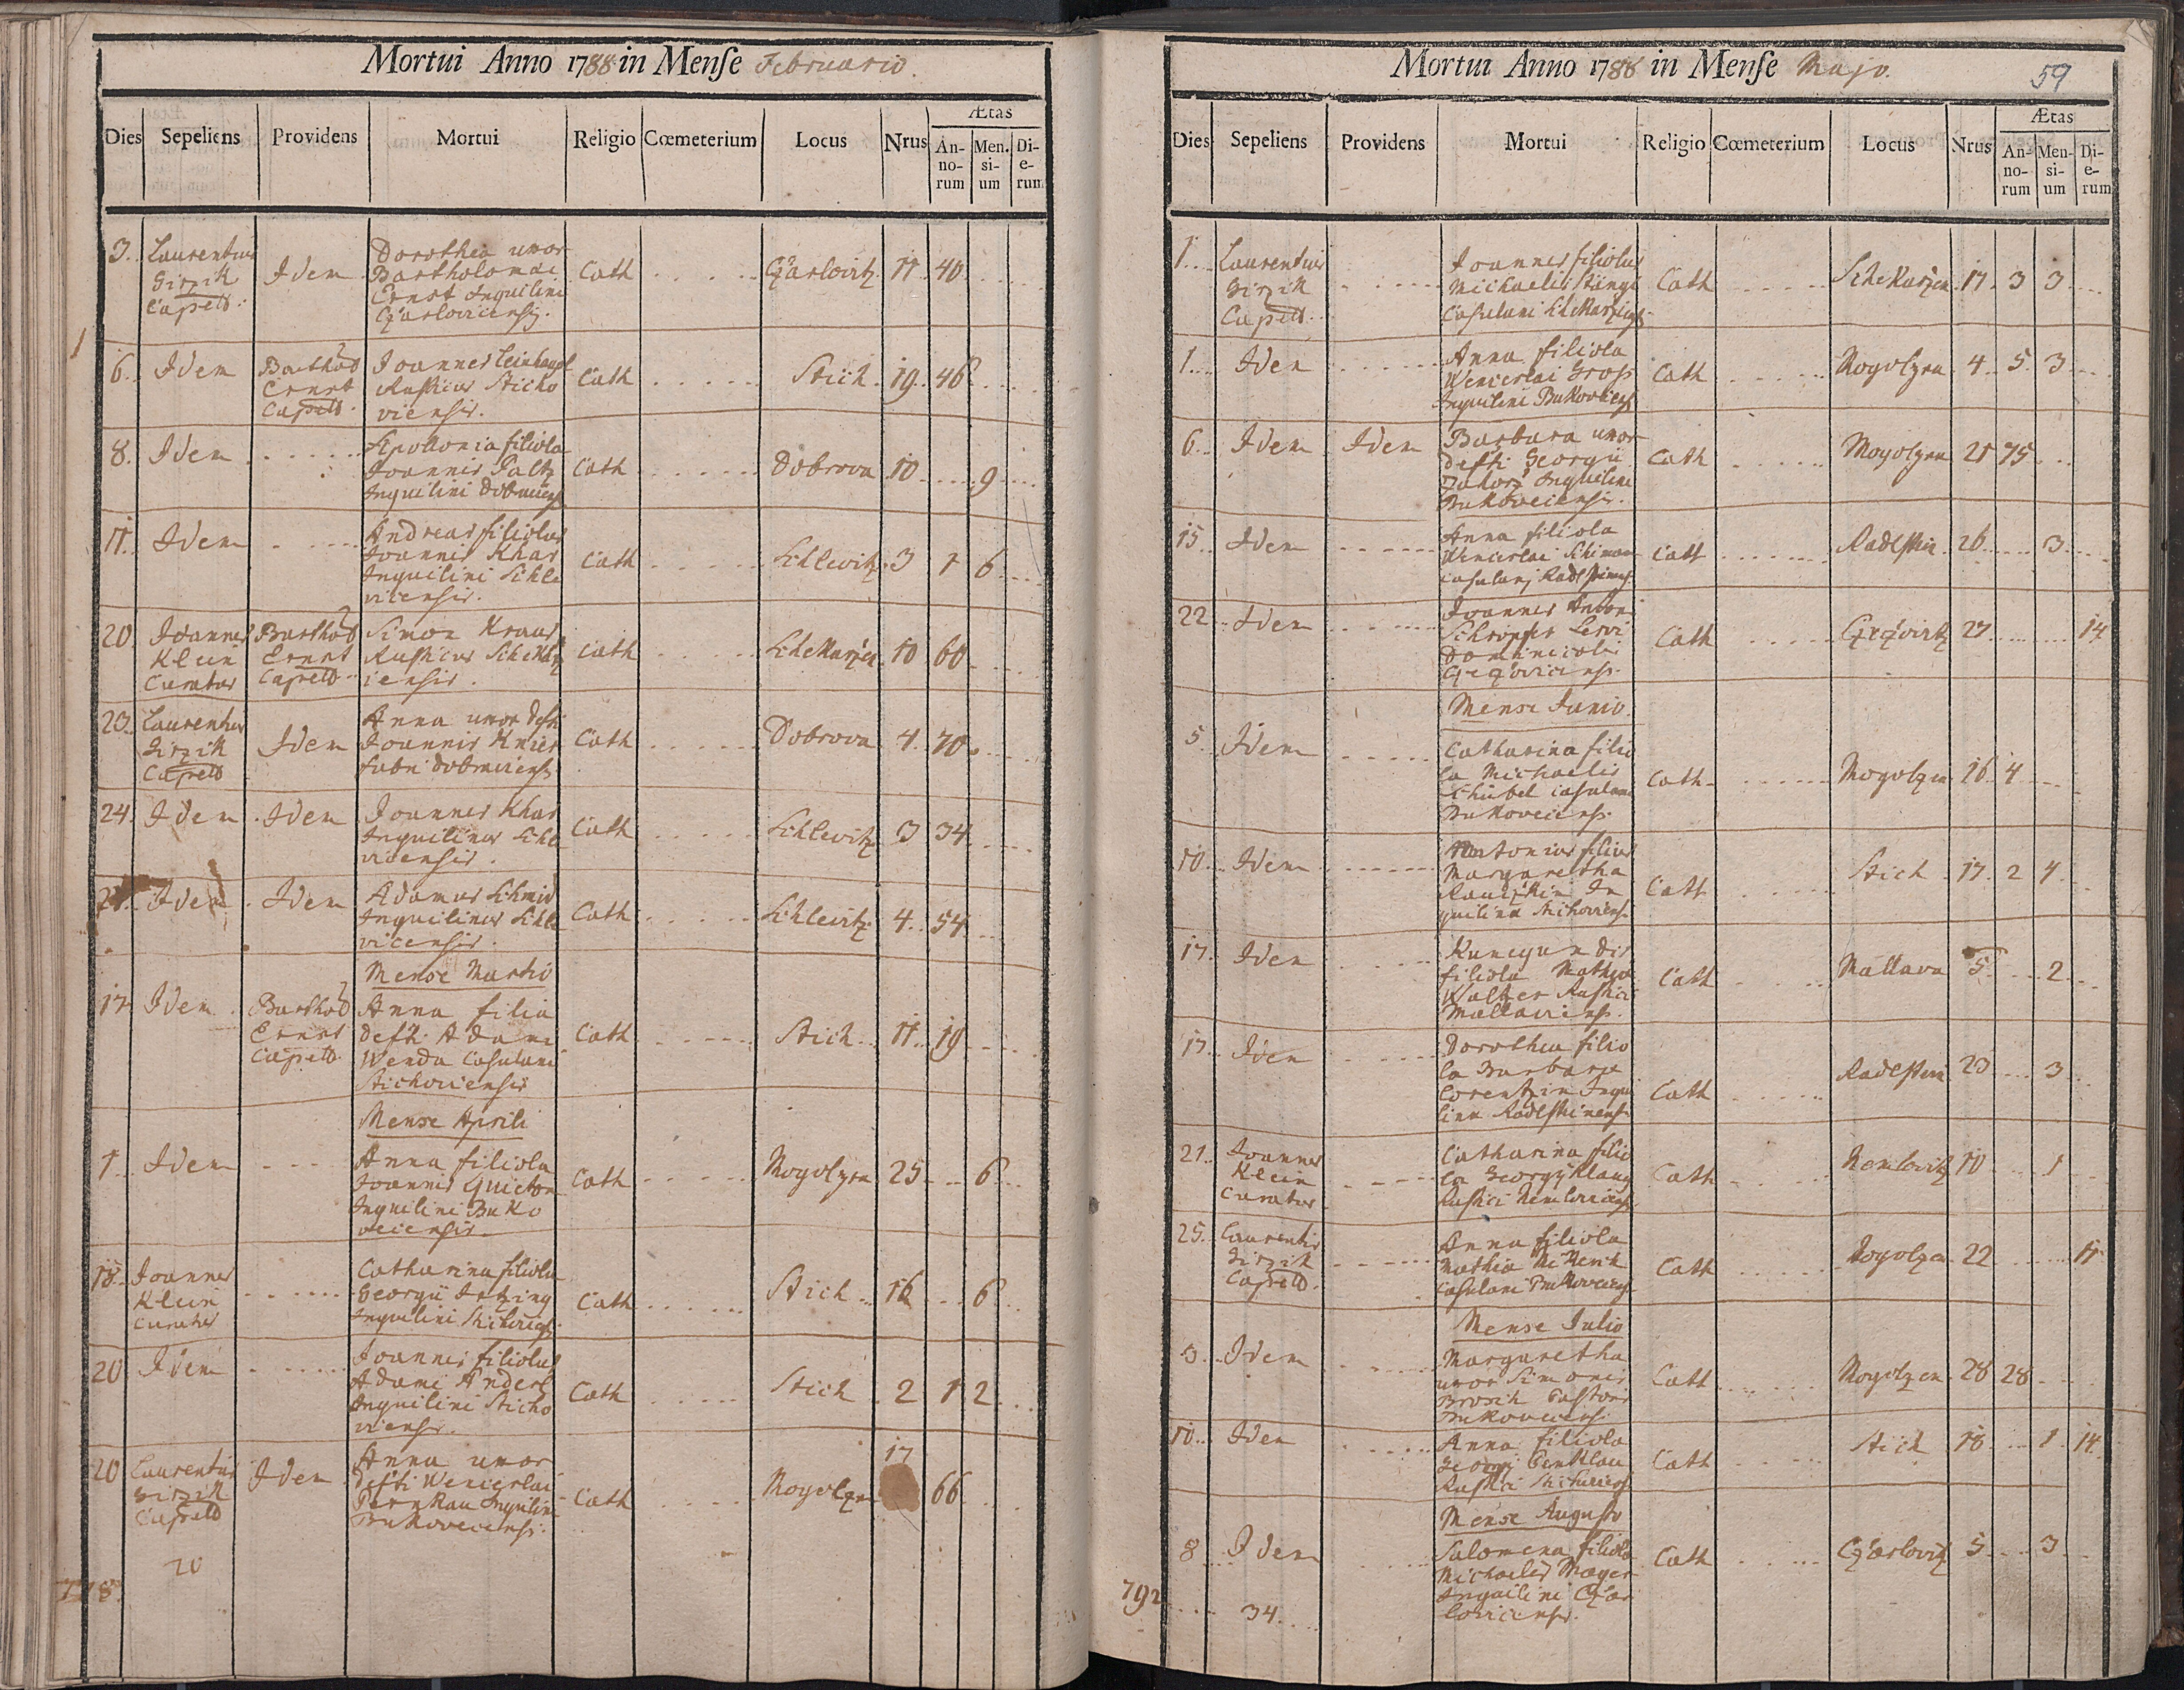 Mortui Anno 1788 in Menſe Februario.
Dies Sepeliens Providens Mortui Religio Cœmeterium Locus Nrus Ætas
An-no-rum Men-si-um Di-e-rum
3. Laurentius Girzik Capell. Idem Dorothea uxor Bartholomaei Ernst Inquilini Czarlovicensis. Cath Czarlovitz 11 40
6. Idem Barthol Ernst Capell. Joannes Rusticus Sticho viensis. Cath Stich 19 46
8. Idem Apollonia filiola Joannis Paltz Inquilini Cath Dobrova 10 9
11. Idem Andreas filiolus Joannis Khas Inquilini Schle vicensis. Cath Schlevitz 3 1 6
20. Joannes Klein Curatus Barthol Ernst Capell. Simon Kraus Rusticus iensis. Cath 10 60
23. Laurentius Girzik Capell Idem Anna uxor defti Joannis Knies fabri Cath Dobrova 4 70
24. Idem Idem Joannes Khas Inquilinus Schle vicensis. Cath Schlevitz 3 34
Idem Idem Adamus Schmid Inquilinus Schle vicensis. Cath Schlevitz 4 54
Mense Martio
17 Idem Barthol Ernst Capell. Anna filia defti Adami Wenda Casulani Stichoviensis Cath Stich 11 19
Mense Aprili
1. Idem Anna filiola Joannis Inquilini Buko veciensis. Cath Mogolzen 25 6
18. Joannes Klein Curatus Catharina filiola Georgii Inquilini Cath Stich 16 6
20 Idem Joannes filiolus Adami Anderl Inquilini Sticho viensis. Cath Stich 2 1 2
20 Laurentius Girzik Capell Idem Anna uxor defti Wenceslai Inquilini Bukoveciensis. Cath Mogolzen 17 66
20
Mortui Anno 1788 in Menſe Majo.
59
Dies Sepeliens Providens Mortui Religio Cœmeterium Locus Nrus Ætas
An-no-rum Men-si-um Di-e-rum
1. Laurentius Girzik Capell. Joannes filiolus Michaelis Casulani Cath 17 3 3
1. Idem Anna filiola Wenceslai Gross Inquilini Cath Mogolzen 4 5 3
6. Idem Idem Barbara uxor defti Georgii Inquilini Bukoveciensis. Cath Mogolzen 21 75
15 Idem Anna filiola Wenceslai Casulani Cath Radlstein 26 3
22 Idem Joannes Antoni Schropfer Servi Dominicalis Cath 27 14
Mense Junio.
5. Idem Catharina filio la Michaelis Casulani Bukoveciens. Cath Mogolzen 16 4
10. Idem Antonius filius Margaretha In quilina Cath Stich 17 2 4
17. Idem Kunegun dis filiola Mathiae Walter Rustici Cath Mallava 5 2
17. Idem Dorothea filio la Barbara Inqui lina Cath Radlstein 23 3
21. Joannes Klein Curatus Catharina filio la Georgy Rustici Cath Nemlovitz 10 1
25. Laurentius Girzik Capell. Anna filiola Mathia Casulani Cath Mogolzen 22 11
Mense Julio
3. Idem Margaretha uxor Simonis Brosch Pastoris Cath Mogolzen 28 28
10. Idem Anna filiola Georgi Rustici Cath Stich 18 1 14
Mense Augusto
8 Idem Salomena filiola Michaelis Inquilini Czar loviciensis. Cath Czarlovitz 5 3
792
34